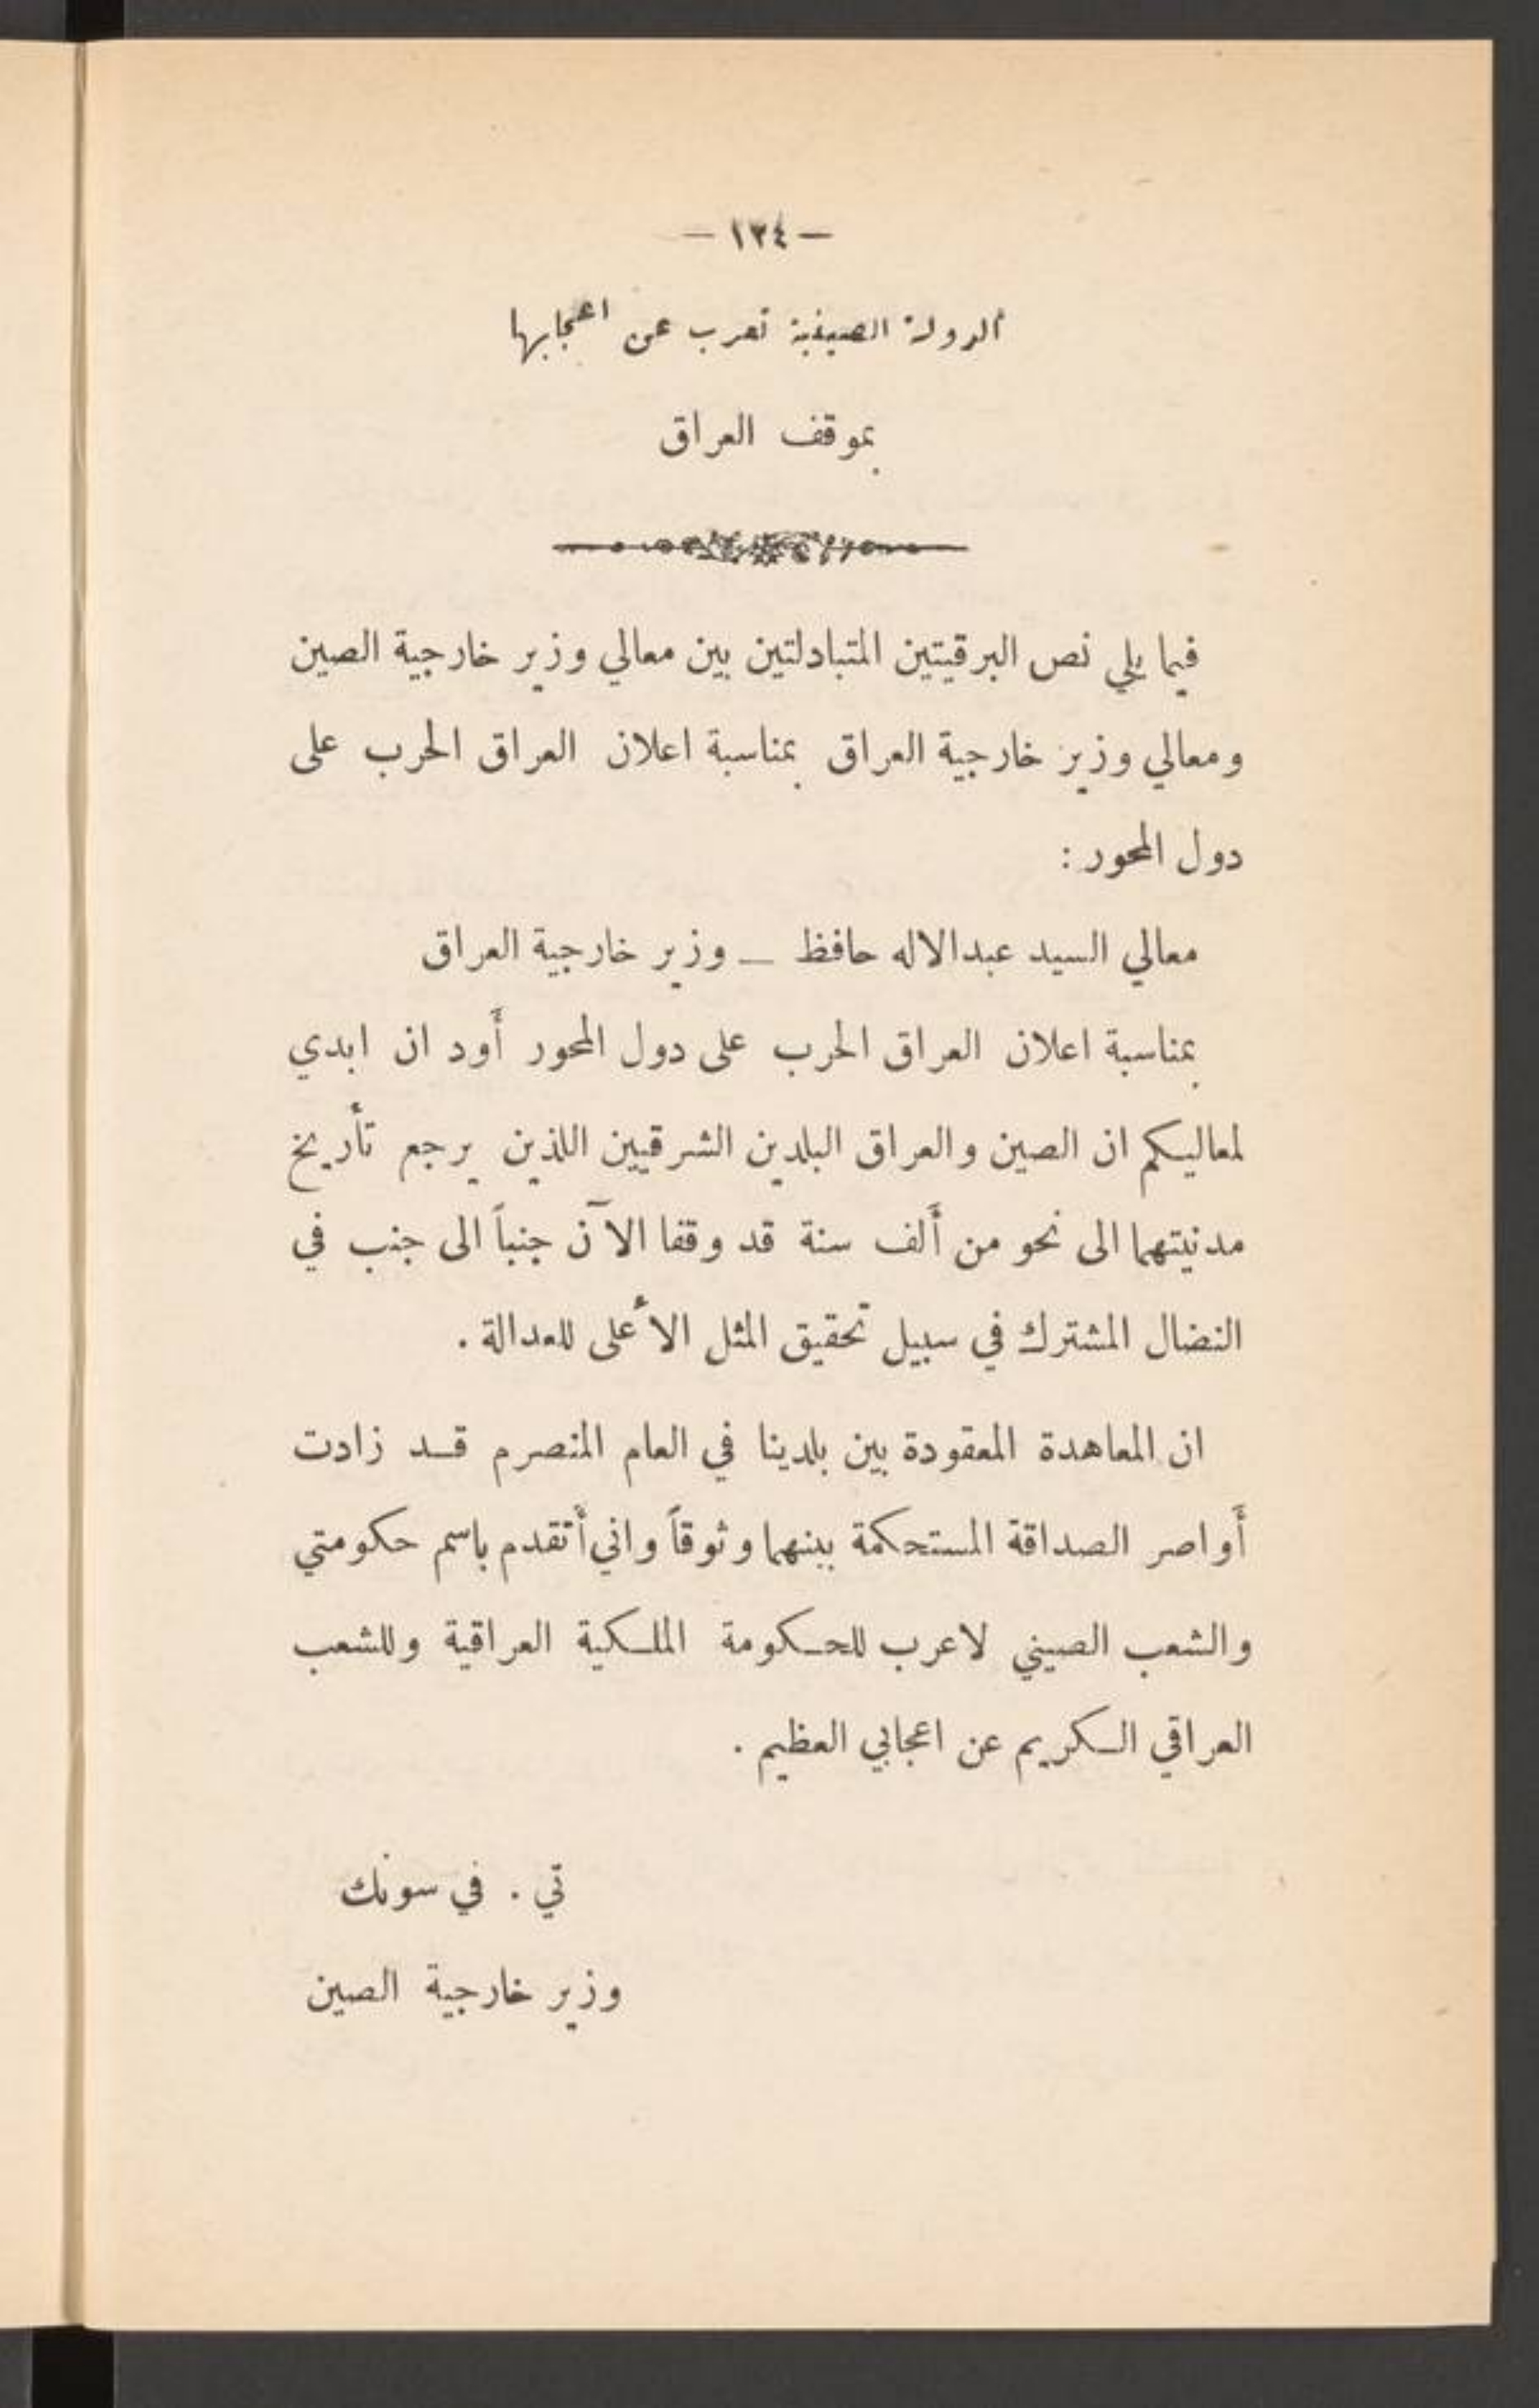 — ١٣٤ —
الدولة الصينية تعرب عن اعجابها
بموقف العراق
فيما يلي نص البرقيتين المتبادلتين بين معالي وزير خارجية الصين
ومعالي وزير خارجية العراق بمناسبة اعلان العراق الحرب على
دول المحور :
معالي السيد عبدالاله حافظ — وزير خارجية العراق
بمناسبة اعلان العراق الحرب على دول المحور أود ان ابدي
لمعاليكم ان الصين والعراق البلدين الشرقيين اللذين يرجع تأريخ
مدنيتهما الى نحو من ألف سنة قد وقفا الآن جنباً الى جنب في
النضال المشترك في سبيل تحقيق المثل الأعلى للعدالة .
ان المعاهدة المعقودة بين بلدينا في العام المنصرم قد زادت
أواصر الصداقة المستحكمة بينهما وثوقاً واني أتقدم باسم حكومتي
والشعب الصيني لاعرب للحكومة الملكية العراقية وللشعب
العراقي الكريم عن اعجابي العظيم .
تي . في سونك
وزير خارجية الصين